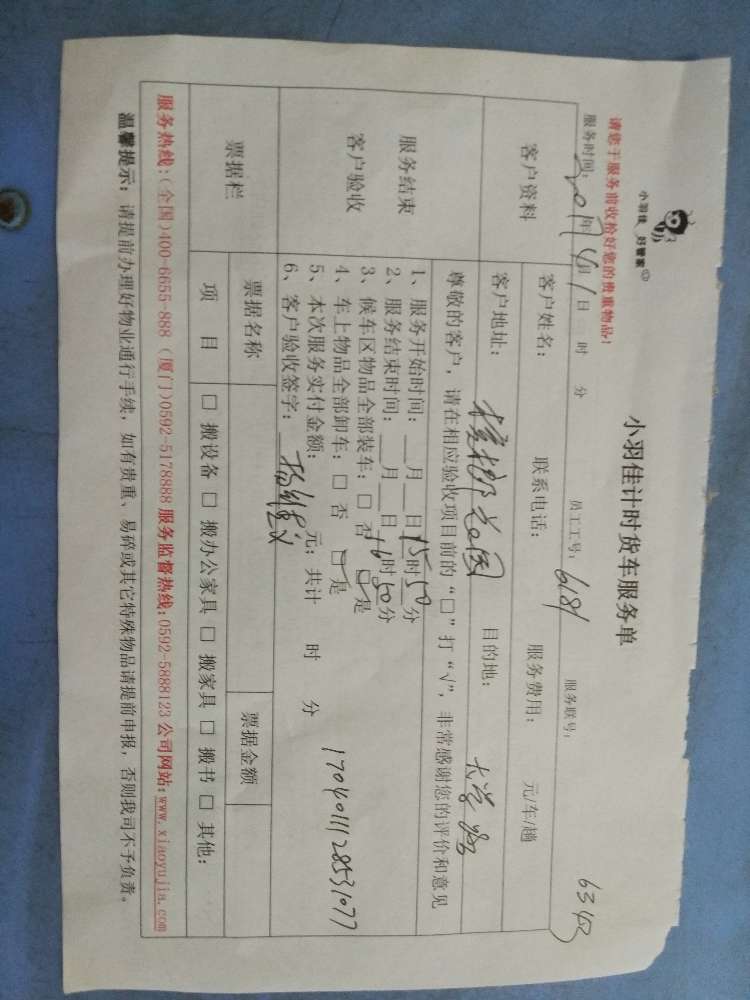 小羽佳 好管家
小羽佳计时货车服务单
请您于服务前收检好您的贵重物品!
员工工号: 6181 服务联号:
服务时间: 2017年4月1日 时 分
6343
客户资料
客户姓名: 联系电话: 服务费用: 元/车/趟
客户地址: 槟榔花园 目的地: 大学路
服务结束
客户验收
尊敬的客户,请在相应验收项目前的“□”打“√”,非常感谢您的评价和意见
1、服务开始时间:__月__日15时50分
2、服务结束时间:__月__日16时50分
3、候车区物品全部装车:□ 否 □ 是
4、车上物品全部卸车:□ 否 □ 是
5、本次服务实付金额: 元;共计 时 分
6、客户验收签字:
1704011128531077
票据栏
票据名称 票据金额
项 目 □ 搬设备 □ 搬办公家具 □ 搬家具 □ 搬书 □ 其他:
服务热线:(全国)400-6655-888 (厦门)0592-5178888 服务监督热线:0592-5888123 公司网站:www.xiaoyujia.com
温馨提示:请提前办理好物业通行手续,如有贵重、易碎或其它特殊物品请提前申报,否则我司不予负责。